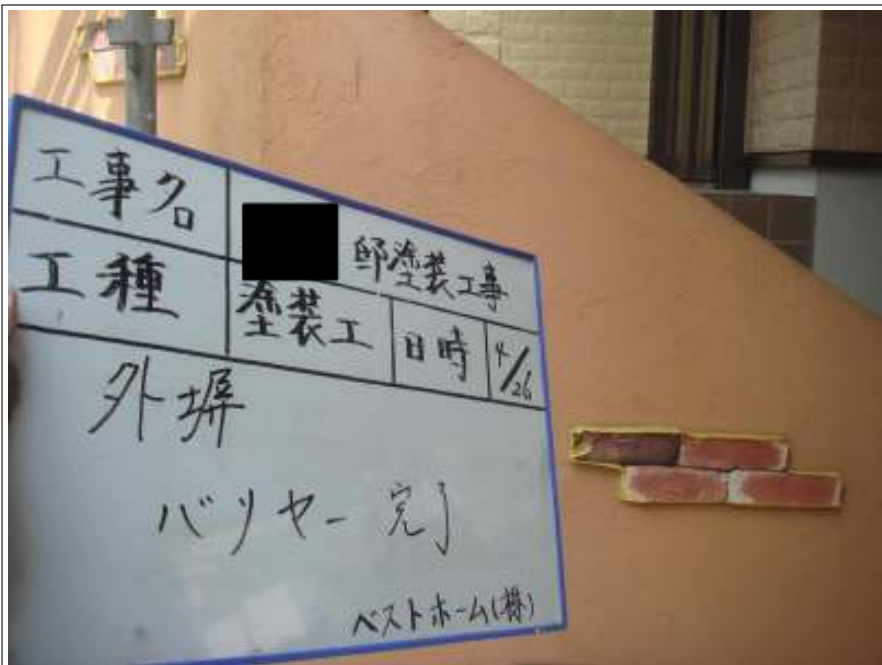 工事名
邸塗装工事
工種
塗装工
日時
4/26
外塀
バリヤー 完了
ベストホーム(株)